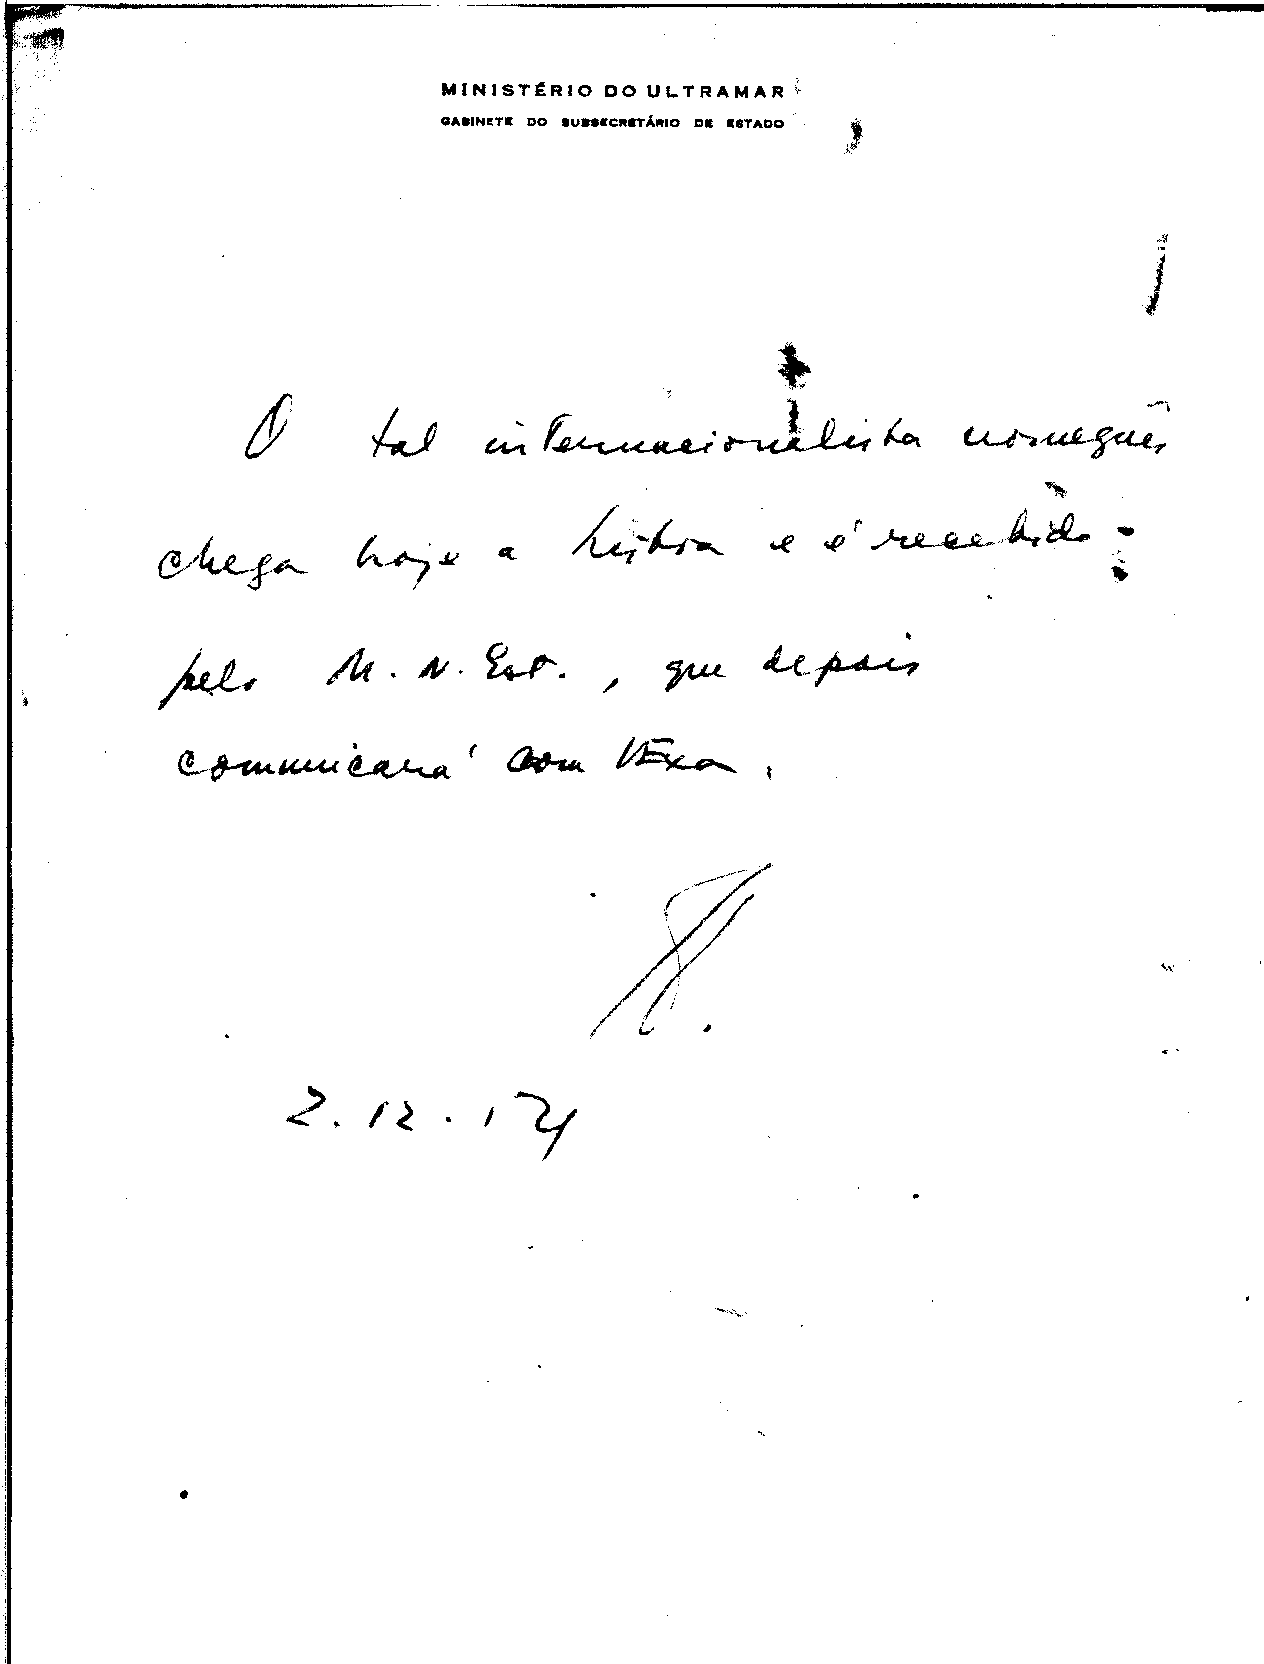 MINISTÉRIO DO ULTRAMAR
GABINETE DO SUBSECRETÁRIO DE ESTADO
O tal internacionalista norueguês
chega hoje a Lisboa e é recebido
pelo M. N. Est., que depois
comunicará com VExa.
2.12.